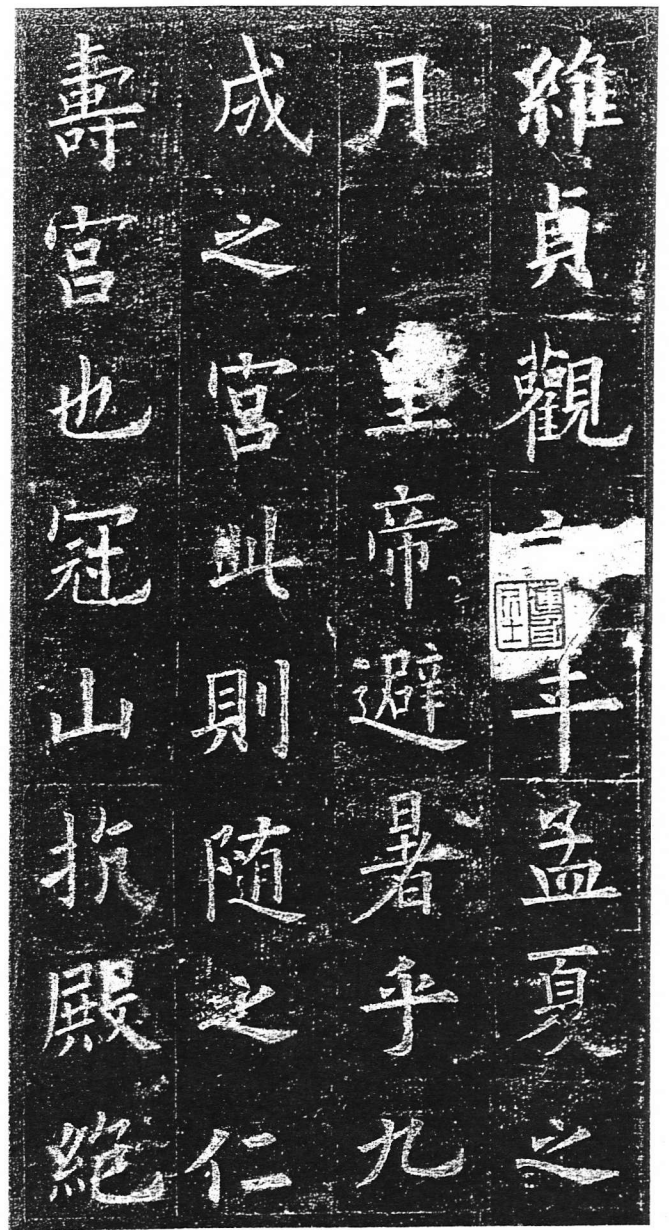 維貞觀六年孟夏之
月 皇帝避暑乎九
成之宮此則随之仁
壽宮也冠山抗殿絕